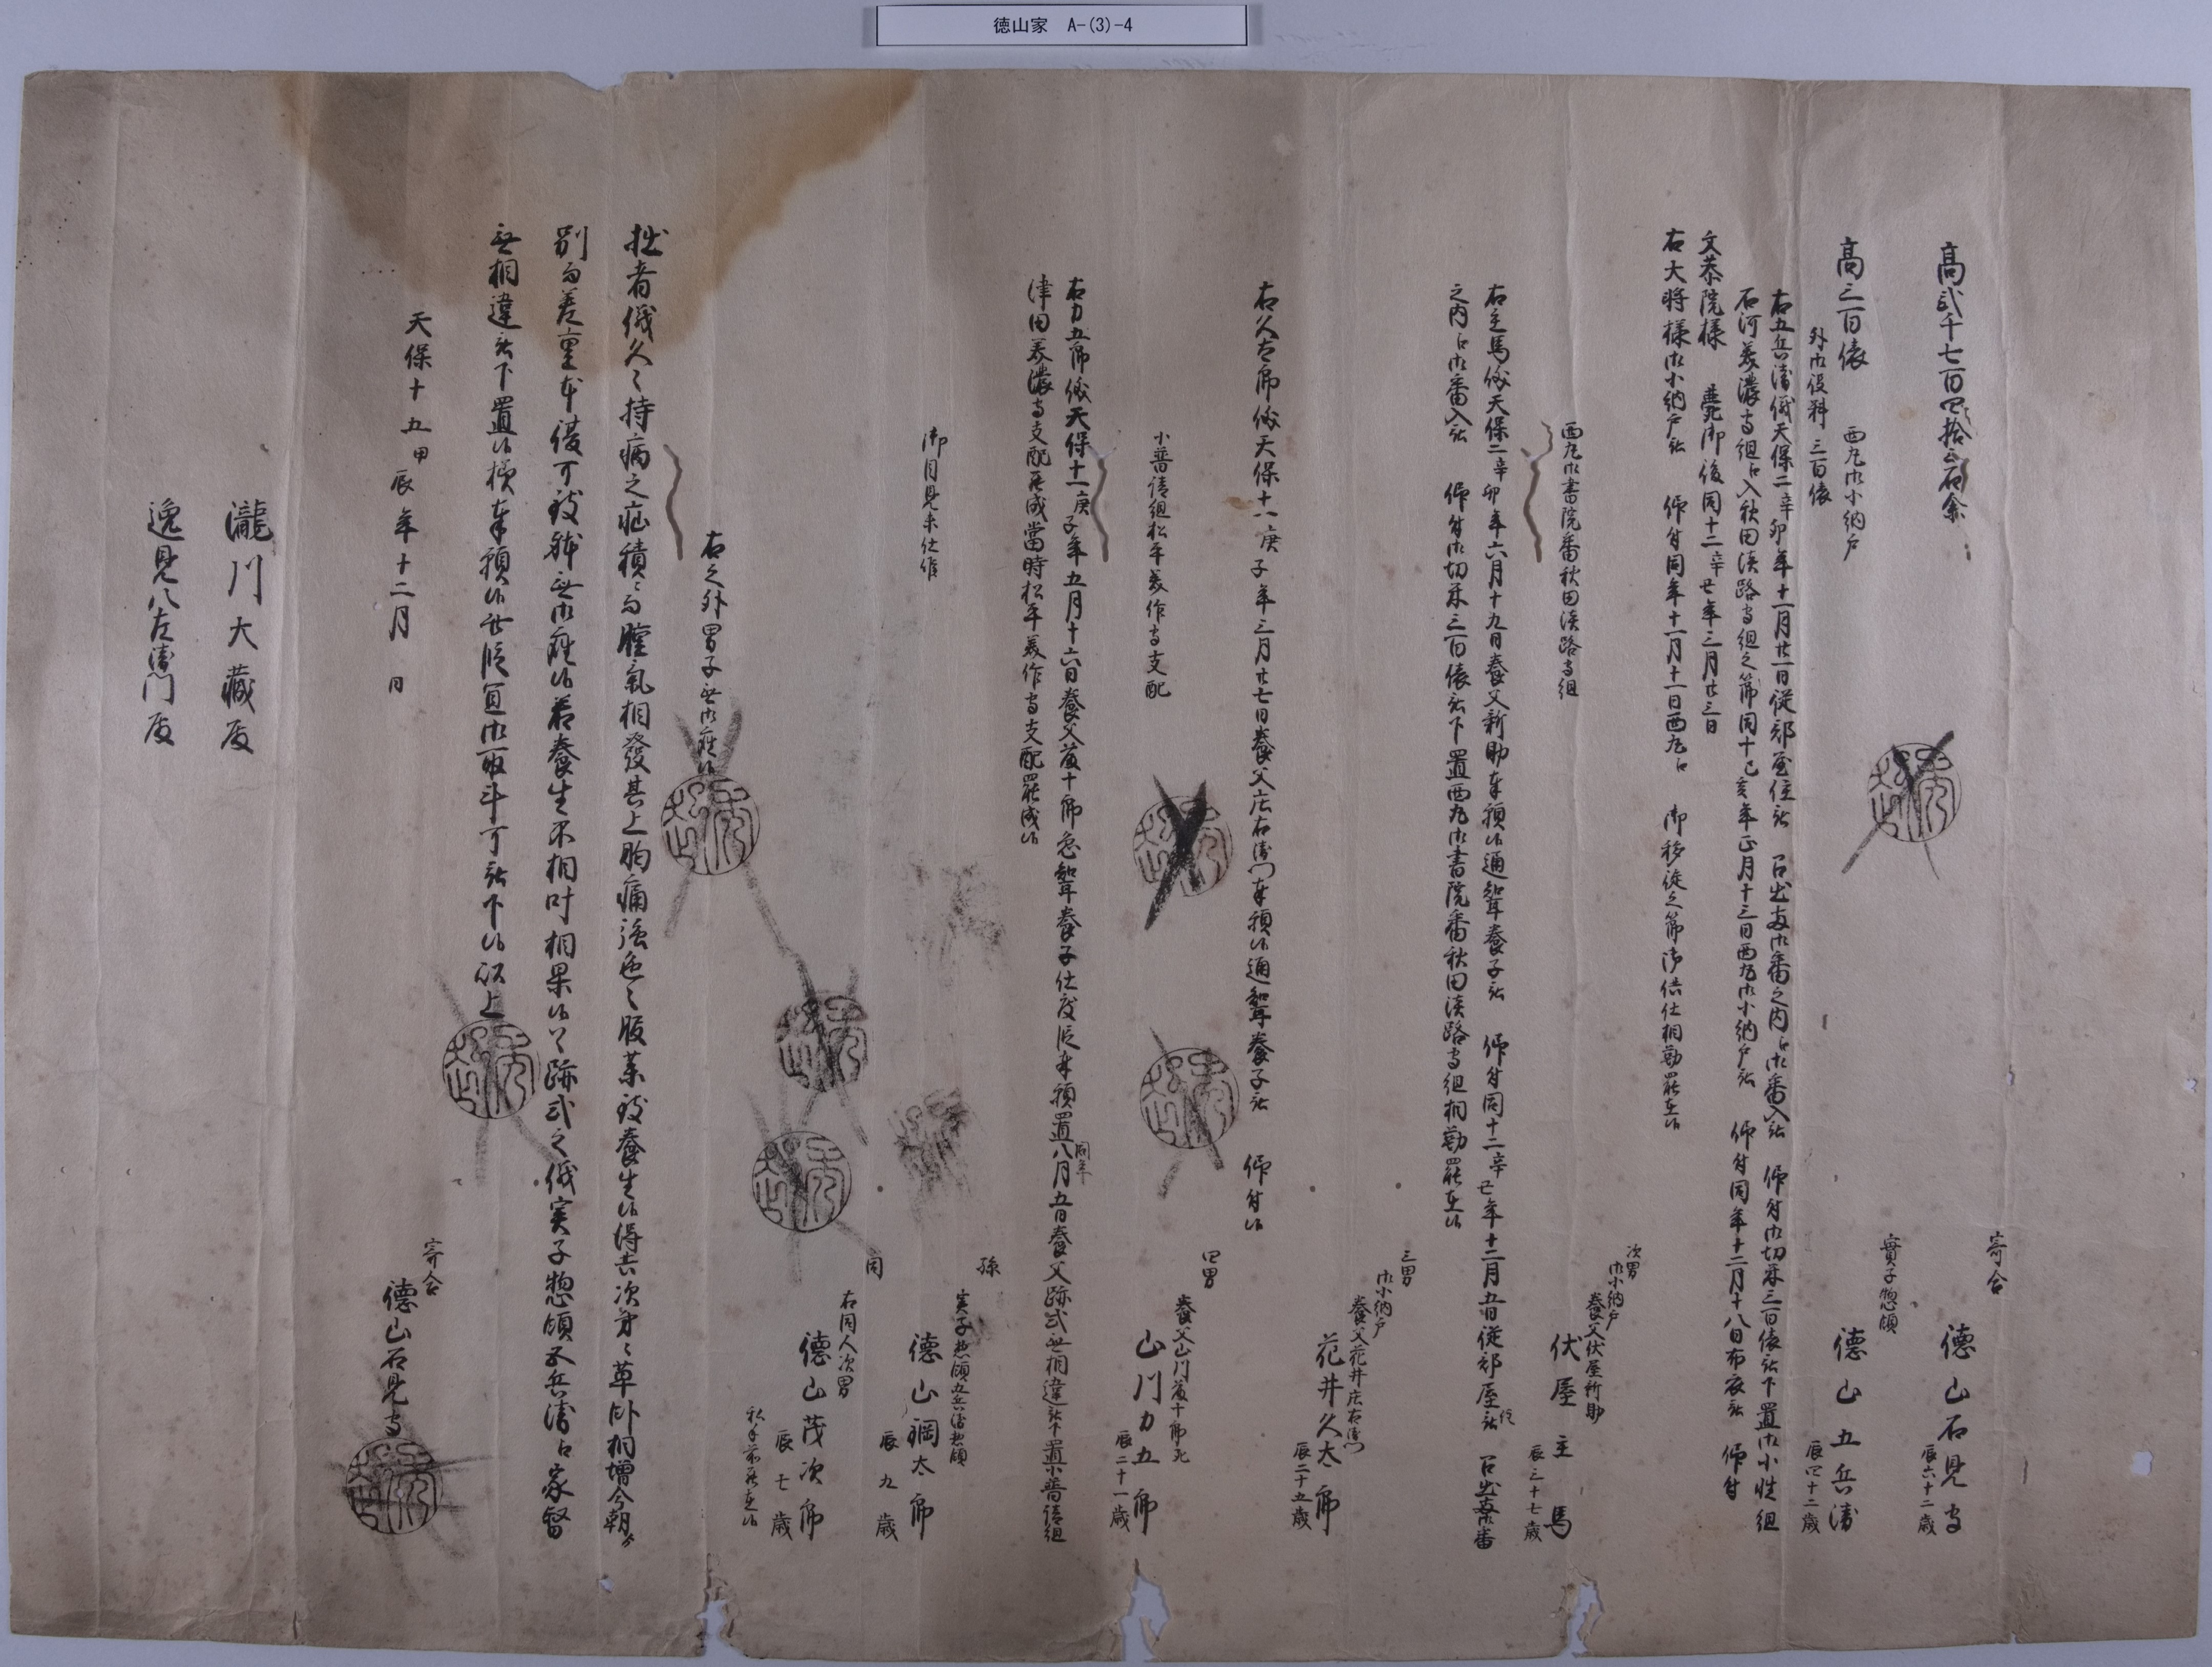 徳山家 A-(3)-4
高弐千七百四拾三石余
寄合
徳山石見守
辰六十二歳
高三百俵
西丸御小納戸
外御役料三百俵
實子惣領
徳山五兵衛
辰四十二歳
右五兵衛儀天保二辛卯年十一月廿一日従部屋住被 召出両御番之内江御番入被 仰付御切米三百俵被下置御小性組
石河美濃守組江入秋田淡路守組之節同十己亥年正月十三日西丸御小納戸被 仰付同年十二月十八日布衣被 仰付
文恭院様 薨御後同十二辛丑年三月廿三日
右大将様御小納戸被 仰付同年十一月十一日西丸江 御移徙之節御供仕相勤罷在候
西丸御書院番秋田淡路守組
次男
御小納戸
養父伏屋新助
伏屋主馬
辰三十七歳
右主馬儀天保二辛卯年六月十九日養父新助奉願候通聟養子被 仰付同十二辛丑年十二月五日従部屋住被 召出両御番
之内江御番入被 仰付御切米三百俵被下置西丸御書院番秋田淡路守組相勤罷在候
三男
御小納戸
養父花井庄右衛門
花井久太郎
辰二十五歳
右久太郎儀天保十一庚子年三月廿七日養父庄右衛門奉願候通聟養子被 仰付候
小普請組松平美作守支配
四男
養父山川藤十郎死
山川力五郎
辰二十一歳
右力五郎儀天保十一庚子年五月十六日養父藤十郎急聟養子仕度段奉願置同年八月五日養父跡式無相違被下置小普請組
津田美濃守支配罷成當時松平美作守支配罷成候
御目見未仕候
孫
実子惣領五兵衛惣領
徳山鋼太郎
辰九歳
同
右同人次男
徳山茂次郎
辰七歳
私手前罷在候
右之外男子無御座候
拙者儀久々持病之疝積ニ而𦚰氣相發其上胸痛強色々服薬致養生候得共次第ニ草臥相増今朝ゟ
別而差重本復可致躰無御座候若養生不相叶相果候ハヽ跡式之儀実子惣領五兵衛江家督
無相違被下置候様奉願候此段宜御取斗可被下候以上
天保十五甲辰年十二月 日
寄合
徳山石見守
瀧川大藏殿
逸見八左衛門殿